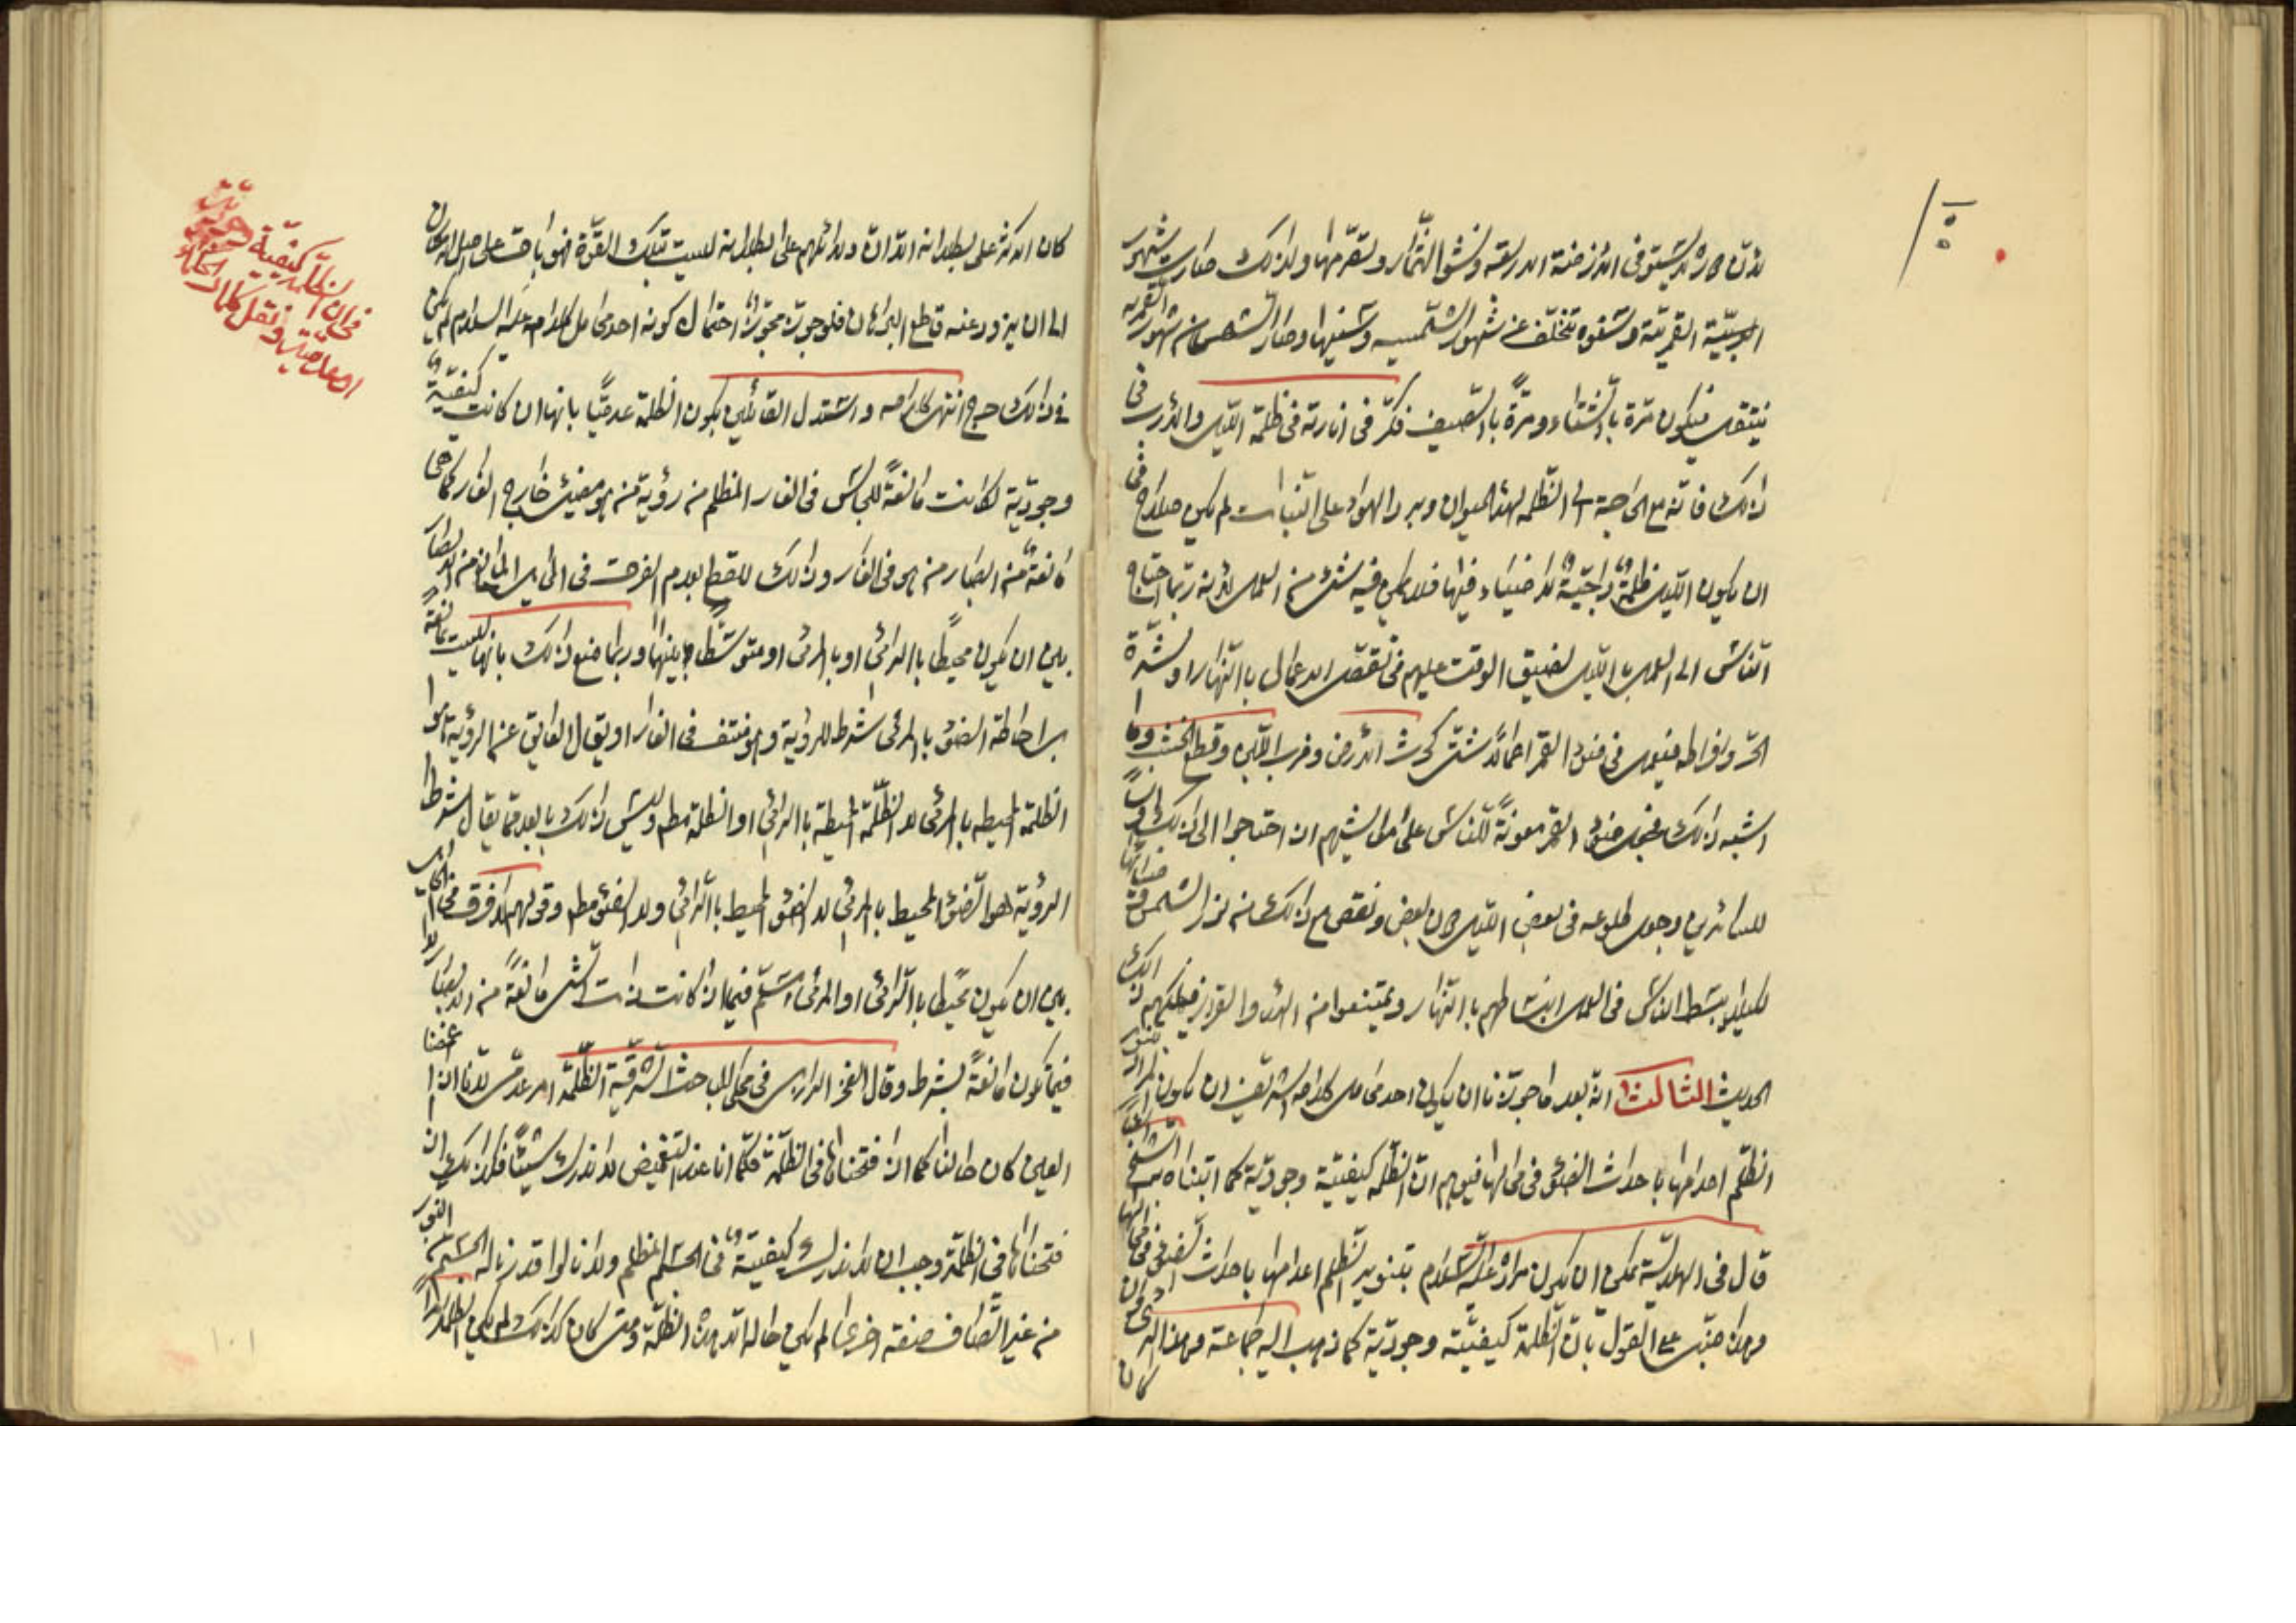 لأن دوره لا يستوفى الأزمنة الأربعة ونشو الثمار وتصرمها ولذلك صارت شهور
القمرية وسنوه تتخلف عن شهور الشمسية وسنيها وصار الشهر من شهور القمرية
ينتقل فيكون مرة بالشتاء ومرة بالصيف فكر في انارته في ظلمة الليل والأرب في
ذلك فانه مع الحاجة الى الظلمة لهدء الحيوان وبرد الهواء على النبات لم يكن صلاح في
ان يكون الليل ظلمة داجية لا ضياء فيها فلا يمكن فيه شئ من العمل لانه ربما احتاج
الناس الى العمل بالليل لضيق الوقت عليهم في تقصى الاعمال بالنهار او شدة
الحر وافراطه فيعمل في ضوء القمر اعمالا شتى كحرث الأرض وضرب اللبن وقطع الخشب وما
اشبه ذلك فجعل ضوء القمر معونة للناس على معايشهم اذا احتاجوا الى ذلك وانسا
للسائرين وجعل طلوعه في بعض الليل دون بعض ونقص مع ذلك من نور الشمس وضيائها
لكيلا ينبسط الناس في العمل انبساطهم بالنهار ويمتنعوا من الهدء والقرار فيهلكهم ذلك
الحديث الثالث انه بعد ما جوزنا ان يكون احد محامل كلامه الشريف ان يكون المراد بتنوير
الظلم اعدامها باحداث الضوء في محالها فيوهم ان الظلمة كيفية وجودية كما اثبتناه الشيخ
قال في الهلالية يمكن ان يكون مراده عليه السلام بتنوير الظلم اعدامها باحداث الضوء في محالها
وهذا مبنى على القول بان الظلمة كيفية وجودية كما ذهب اليه جماعة وهذا الرأى وان
كان
كان الاكثر على بطلانه الا ان دلائلهم على بطلانه ليست بتلك القوة فهو باق على اصل الامكان
الى ان يزود عنه قاطع البرهان فلو جوز مجوز احتمال كونه احد محامل كلامه عليه السلام لم يكن
في ذلك حرج انتهى كلامه واستدل القائلين بكون الظلمة عدميا بانها ان كانت كيفية
وجودية لكانت مانعة للجالس في الغار المظلم من رؤية من هو مضئ خارج الغار كما هي
مانعة من ابصار من هو في الغار وذلك للقطع بعدم الفرق في الحائل المانع من الابصار
بين ان يكون محيطا بالرائى او بالمرئى او متوسطا بينهما وربما منع ذلك بانها ليست بمانعة
بل احاطة الضوء بالمرئى شرط للرؤية وهو منتف في الغار او يقال العائق عن الرؤية هو
الظلمة المحيطه بالمرئى لا الظلمة المحيطة بالرائى او الظلمة مطلقا وليس ذلك بابعد مما يقال شرط
الرؤية هو الضوء المحيط بالمرئى لا الضوء المحيط بالرائى ولا الضوء مطلقا وقولهم لا فرق في الحائل
بين ان يكون محيطا بالرائى او المرئى مسلم فيما اذا كانت ذات الشئ مانعة من الابصار لا
فيما تكون مانعة بشرط وقال الفخر الرازى في محكى المباحث المشرقية الظلمة امر عدمى لانا اذا غمضنا
العين كان حالنا كما اذا فتحناها في الظلمة فكما انا عند التغميض لا ندرك شيئا فكذلك اذا
فتحناها في الظلمة وجب ان لا ندرك كيفية في الجسم المظلم ولانا لو قدرنا الجسم خلو النور
من غير انضياف صفة اخرى لم يكن حاله الا هذه الظلمة ومتى كان كذلك لم يكن الظلمة امرا
فى ان الظلمة كيفية